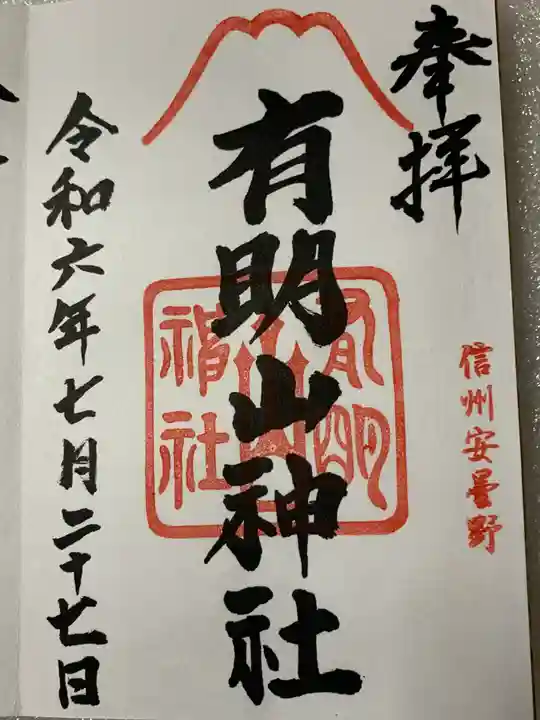 奉拝
信州安曇野
有明山神社
有明
山
神社
令和六年七月二十七日